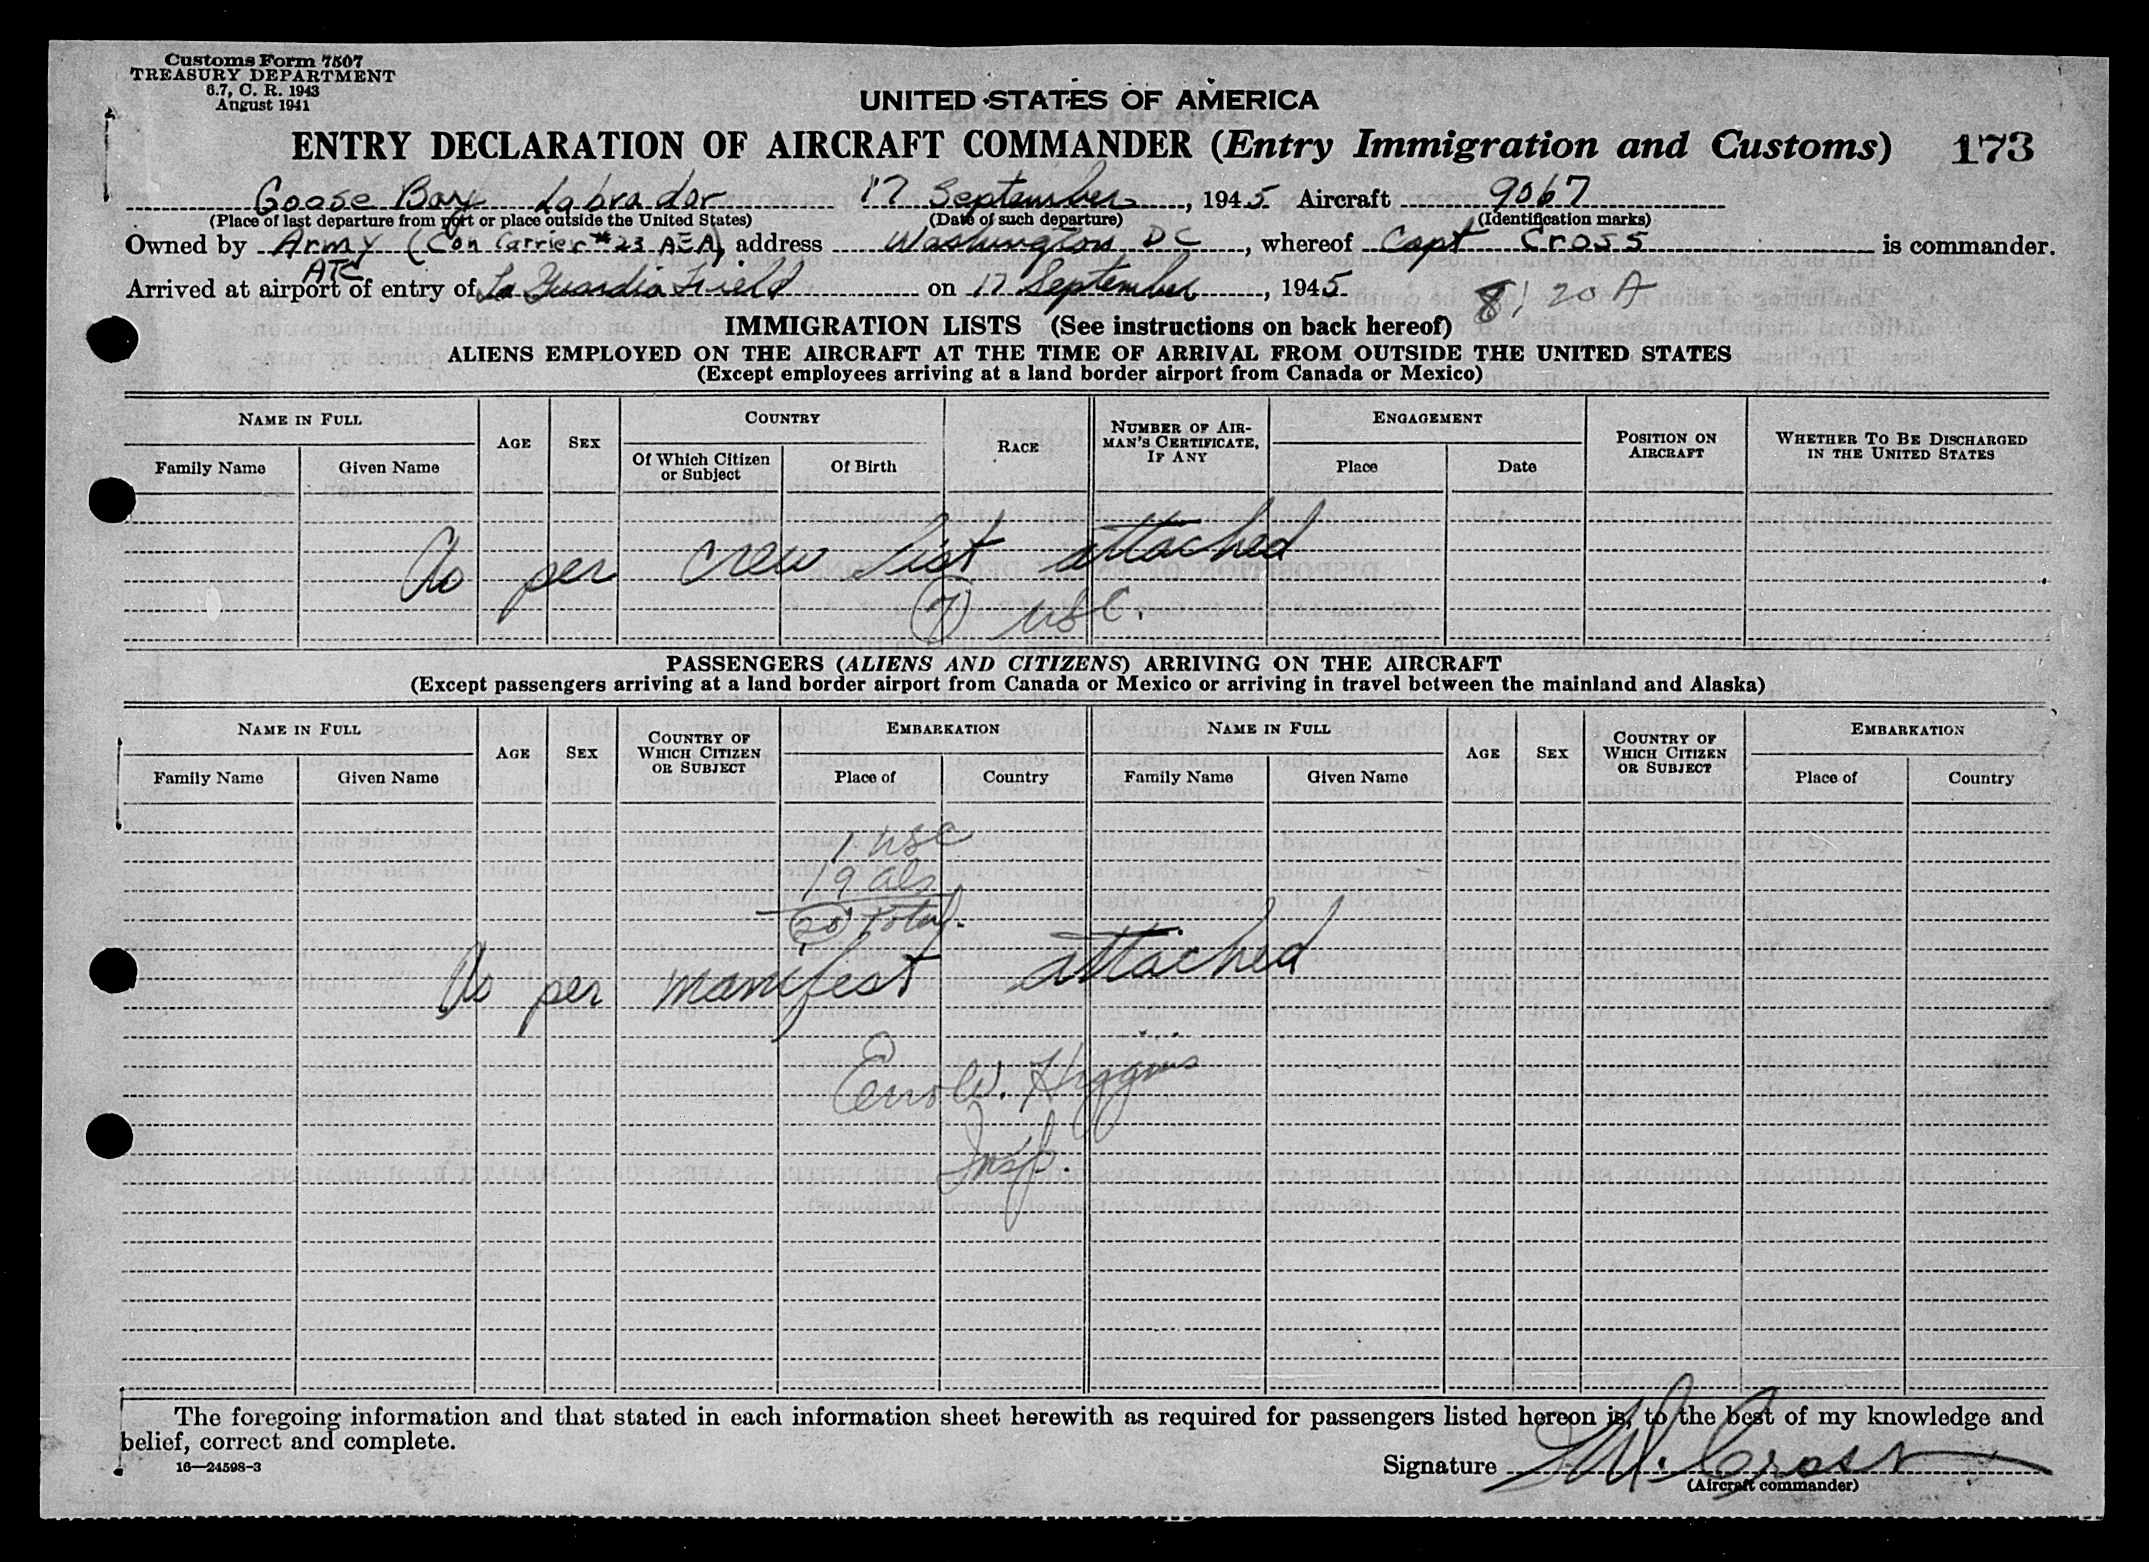 Customs Form 7507
TREASURY DEPARTMENT
6.7, C. R. 1943
August 1941
UNITED STATES OF AMERICA
ENTRY DECLARATION OF AIRCRAFT COMMANDER (Entry Immigration and Customs) 173
Goose Bay Labrador 17 September, 1945 Aircraft 9067
(Place of last departure from port or place outside the United States) (Date of such departure) (Identification marks)
Owned by Army (Con Carrier #23 AEA), address Washington DC, whereof Capt Cross is commander.
ATC
Arrived at airport of entry of La Guardia Field on 17 September, 1945 8:20 A
IMMIGRATION LISTS (See instructions on back hereof)
ALIENS EMPLOYED ON THE AIRCRAFT AT THE TIME OF ARRIVAL FROM OUTSIDE THE UNITED STATES
(Except employees arriving at a land border airport from Canada or Mexico)
NAME IN FULL AGE SEX COUNTRY RACE NUMBER OF AIRMAN'S CERTIFICATE, IF ANY ENGAGEMENT POSITION ON AIRCRAFT WHETHER TO BE DISCHARGED IN THE UNITED STATES
Family Name Given Name Of Which Citizen or Subject Of Birth Place Date
As per crew list attached
(7) USC.
PASSENGERS (ALIENS AND CITIZENS) ARRIVING ON THE AIRCRAFT
(Except passengers arriving at a land border airport from Canada or Mexico or arriving in travel between the mainland and Alaska)
NAME IN FULL AGE SEX COUNTRY OF WHICH CITIZEN OR SUBJECT EMBARKATION NAME IN FULL AGE SEX COUNTRY OF WHICH CITIZEN OR SUBJECT EMBARKATION
Family Name Given Name Place of Country Family Name Given Name Place of Country
1 USC
19 als
20 Total.
As per manifest attached
Errol W. Higgins
Insp.
The foregoing information and that stated in each information sheet herewith as required for passengers listed hereon is, to the best of my knowledge and
belief, correct and complete.
16—24598-3
Signature M. Cross
(Aircraft commander)